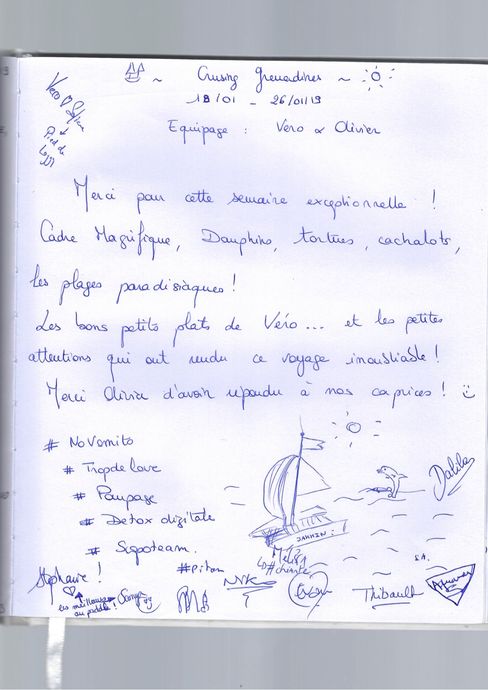 ~ Cruising Grenadines ~
18/01 - 26/01/19
Equipage : Vero & Olivier
Merci pour cette semaine exceptionnelle !
Cadre Magnifique, Dauphins, tortues, cachalots,
les plages paradisiaques !
Les bons petits plats de Véro... et les petites
attentions qui ont rendu ce voyage inoubliable !
Merci Olivier d'avoir répondu à nos caprices ! :)
# NoVomito
# Tropdelove
# Detox digitale
Dalila
# piton
Stephanie !
les meilleures
Thibault